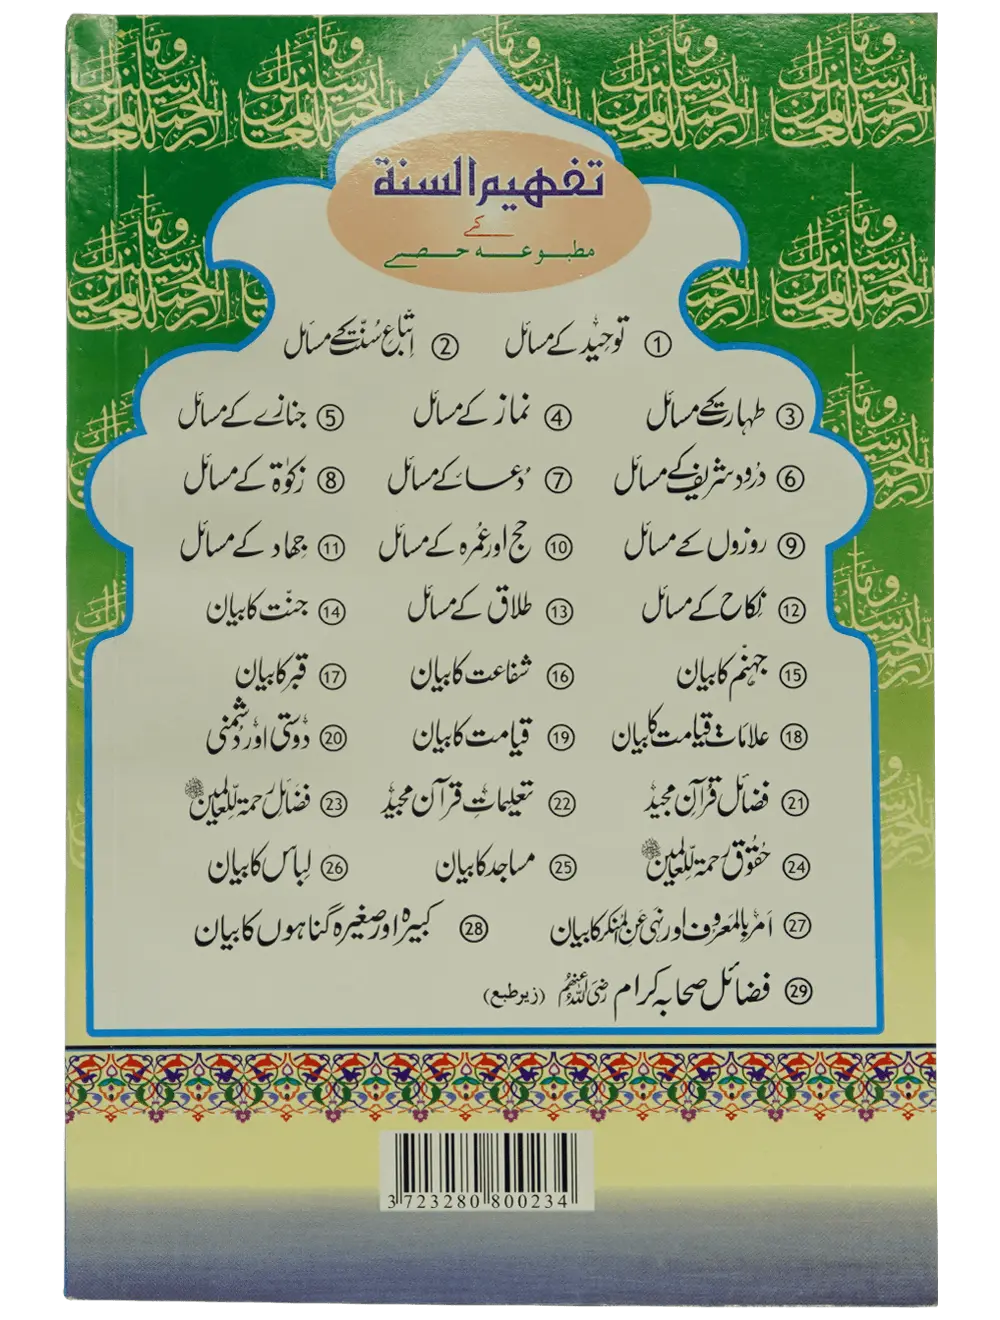 وما أرسلناك إلا رحمة للعالمين
تفهیم السنة
کے
مطبوعہ حصے
① توحید کے مسائل ② اتباع سنّت کے مسائل
③ طہارت کے مسائل ④ نماز کے مسائل ⑤ جنازے کے مسائل
⑥ درود شریف کے مسائل ⑦ دُعا کے مسائل ⑧ زکوٰۃ کے مسائل
⑨ روزوں کے مسائل ⑩ حج اور عُمرہ کے مسائل ⑪ جہاد کے مسائل
⑫ نکاح کے مسائل ⑬ طلاق کے مسائل ⑭ جنّت کا بیان
⑮ جہنّم کا بیان ⑯ شفاعت کا بیان ⑰ قبر کا بیان
⑱ علامات قیامت کا بیان ⑲ قیامت کا بیان ⑳ دوستی اور دشمنی
㉑ فضائل قرآن مجید ㉒ تعلیمات قرآن مجید ㉓ فضائل رحمۃ للّعالمین ﷺ
㉔ حقوق رحمۃ للّعالمین ﷺ ㉕ مساجد کا بیان ㉖ لباس کا بیان
㉗ امر بالمعروف اور نہی عن المنکر کا بیان ㉘ کبیرہ اور صغیرہ گناہوں کا بیان
㉙ فضائل صحابہ کرام رضی اللہ عنہم (زیر طبع)
3723280800234